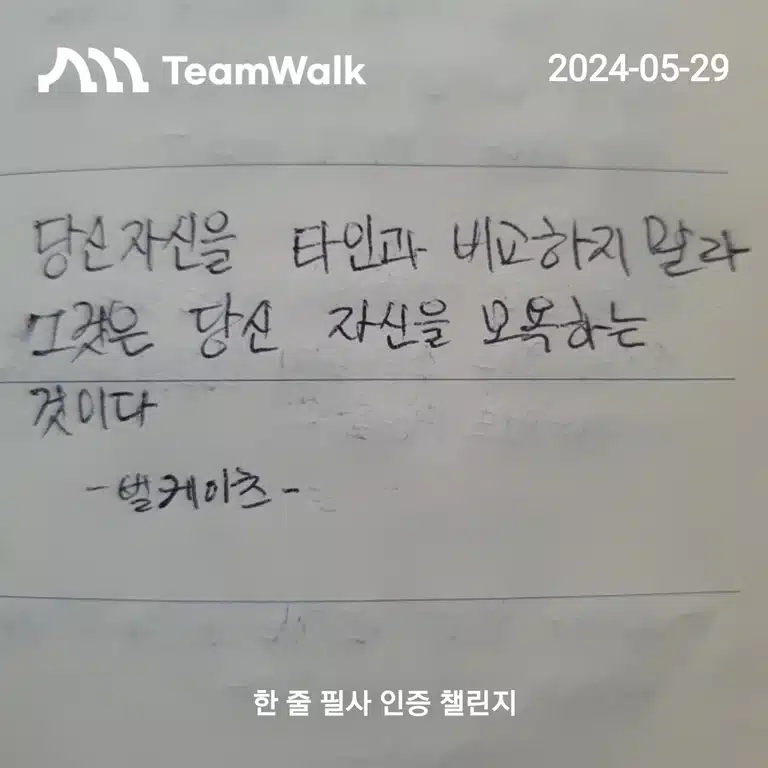 TeamWalk
2024-05-29
당신 자신을 타인과 비교하지 말라
그것은 당신 자신을 모욕하는
것이다
-벌케이츠-
한 줄 필사 인증 챌린지